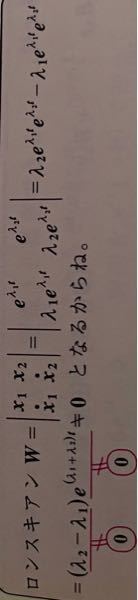 ロンスキアン W = | x₁ x₂ ; ẋ₁ ẋ₂ | = | e^{λ₁t} e^{λ₂t} ; λ₁e^{λ₁t} λ₂e^{λ₂t} | = λ₂e^{λ₁t}e^{λ₂t} − λ₁e^{λ₁t}e^{λ₂t}
= (λ₂ − λ₁)e^{(λ₁+λ₂)t} ≠ 0 となるからね。
≠ ≠
0 0